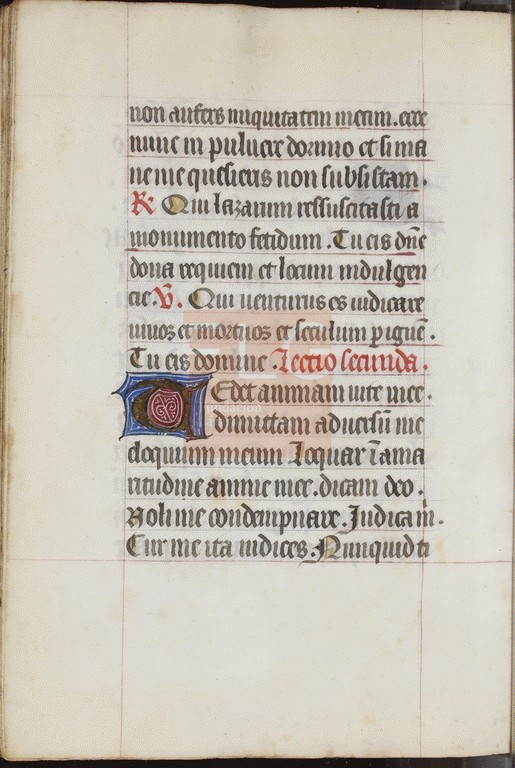 non aufers iniquitatem meam. ecce
nunc in puluere dormio et si ma
ne me quesieris non subsistam.
R Qui lazarum ressuscitasti a
monumento fetidum. Tu eis dn̄e
dona requiem et locum indulgen
cie. V. Qui uenturus es iudicare
uiuos et mortuos et seculum ꝑ ignē.
Tu eis domine. Lectio secunda.
Tedet animam uite mee.
dimittam aduersū me
eloquium meum Loquar ī ama
ritudine anime mee. dicam deo.
Noli me condempnare. Indica m.
Cur me ita iudices. Nunquid ti
fundación